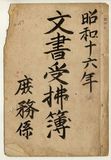 昭和十六年
文書受払簿
庶務係